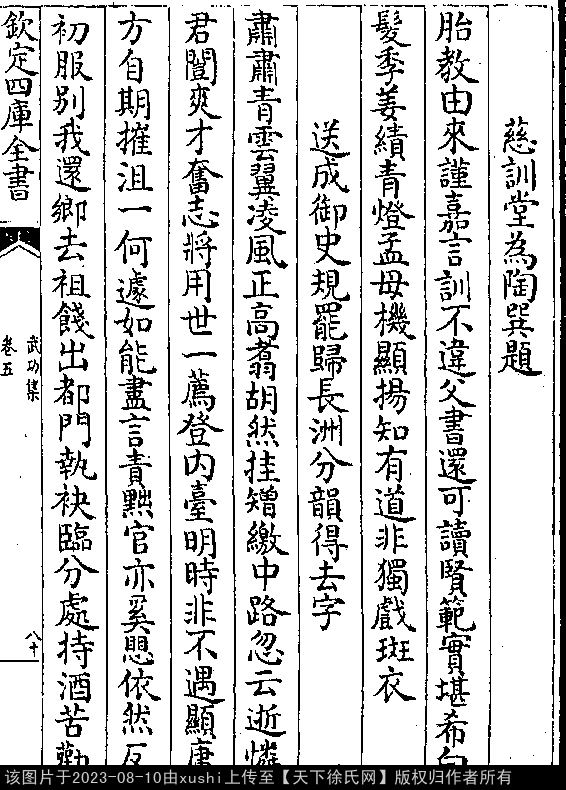 慈訓堂為陶巽題
胎教由來謹嘉言訓不違父書還可讀賢範實堪希白
髮季姜績青燈孟母機顯揚知有道非獨戲斑衣
送成御史規罷歸長洲分韻得去字
肅肅青雲翼凌風正高翥胡然挂矰繳中路忽云逝憐
君豈爽才奮志將用世一薦登內臺明時非不遇顯庸
方自期摧沮一何遽如能盡言責黜官亦奚思依然反
初服別我還鄉去祖餞出都門執袂臨分處持酒苦勸
欽定四庫全書
武功集
卷五
八十
该图片于2023-08-10由xushi上传至【天下徐氏网】版权归作者所有